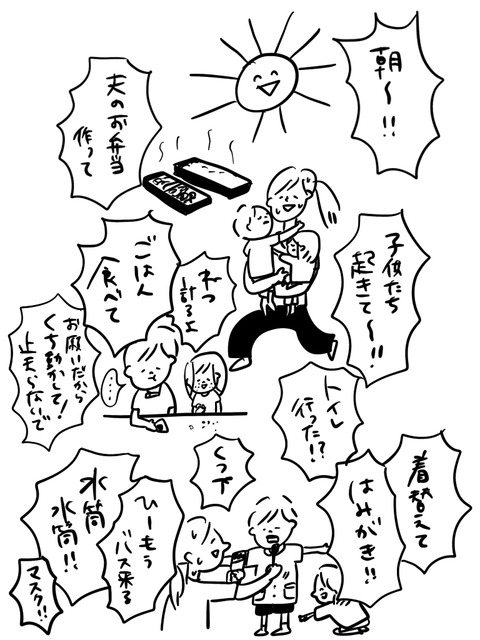 朝〜!!
夫のお弁当
作って
子供たち
起きて〜!!
ごはん
食べて
ねつ
計るよ
お願いだから
くち動かして!
止まらないで
トイレ
行った!?
着替えて
はみがき!!
くつ下
ひーもう
バス来る
水筒
水筒!!
マスク!!